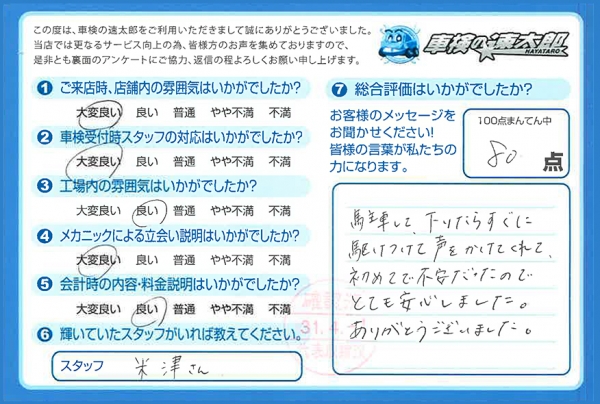 この度は、車検の速太郎をご利用いただきまして誠にありがとうございました。
当店では更なるサービス向上の為、皆様方のお声を集めておりますので、
是非とも裏面のアンケートにご協力、返信の程よろしくお願い申し上げます。
車検の速太郎
HAYATARO
1 ご来店時、店舗内の雰囲気はいかがでしたか?
大変良い 良い 普通 やや不満 不満
2 車検受付時スタッフの対応はいかがでしたか?
大変良い 良い 普通 やや不満 不満
3 工場内の雰囲気はいかがでしたか?
大変良い 良い 普通 やや不満 不満
4 メカニックによる立会い説明はいかがでしたか?
大変良い 良い 普通 やや不満 不満
5 会計時の内容・料金説明はいかがでしたか?
大変良い 良い 普通 やや不満 不満
6 輝いていたスタッフがいれば教えてください。
スタッフ 米津さん
7 総合評価はいかがでしたか?
お客様のメッセージを
お聞かせください!
皆様の言葉が私たちの
力になります。
100点まんてん中
80 点
駐車して、下りたらすぐに
駆けつけて声をかけてくれて、
初めてで不安だったので
とても安心しました。
ありがとうございました。
確認
31.4.